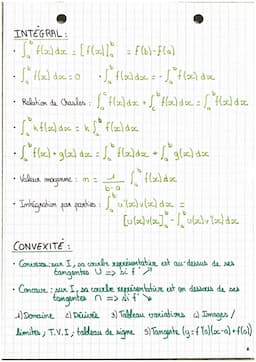 INTÉGRAL :
• ∫ₐᵇ f(x)dx = [f(x)]ₐᵇ = f(b)-f(a)
• ∫ₐᵃ f(x)dx = 0 • ∫ₐᵇ f(x)dx = -∫ᵇₐ f(x)dx
• Relation de Chasles : ∫ₐᶜ f(x)dx + ∫꜀ᵇ f(x)dx = ∫ₐᵇ f(x)dx
• ∫ₐᵇ k f(x)dx = k∫ₐᵇ f(x)dx
• ∫ₐᵇ f(x)+g(x)dx = ∫ₐᵇ f(x)dx + ∫ₐᵇ g(x)dx
• Valeur moyenne : m = 1/(b-a) ∫ₐᵇ f(x)dx
• Intégration par parties : ∫ₐᵇ u'(x)v(x)dx =
[u(x)v(x)]ₐᵇ - ∫ₐᵇ u(x)v'(x)dx
CONVEXITÉ :
• Convexe : sur I, sa courbe représentative est au-dessus de ses
tangentes ∪ => si f' ↗
• Concave : sur I, sa courbe représentative est en dessous de ses
tangentes ∩ => si f' ↘
1) Domaine 2) Dérivée 3) Tableau variations 4) Images /
limites, T.V.I, tableau de signe 5) Tangente (y = f'(a)(x-a)+f(a))